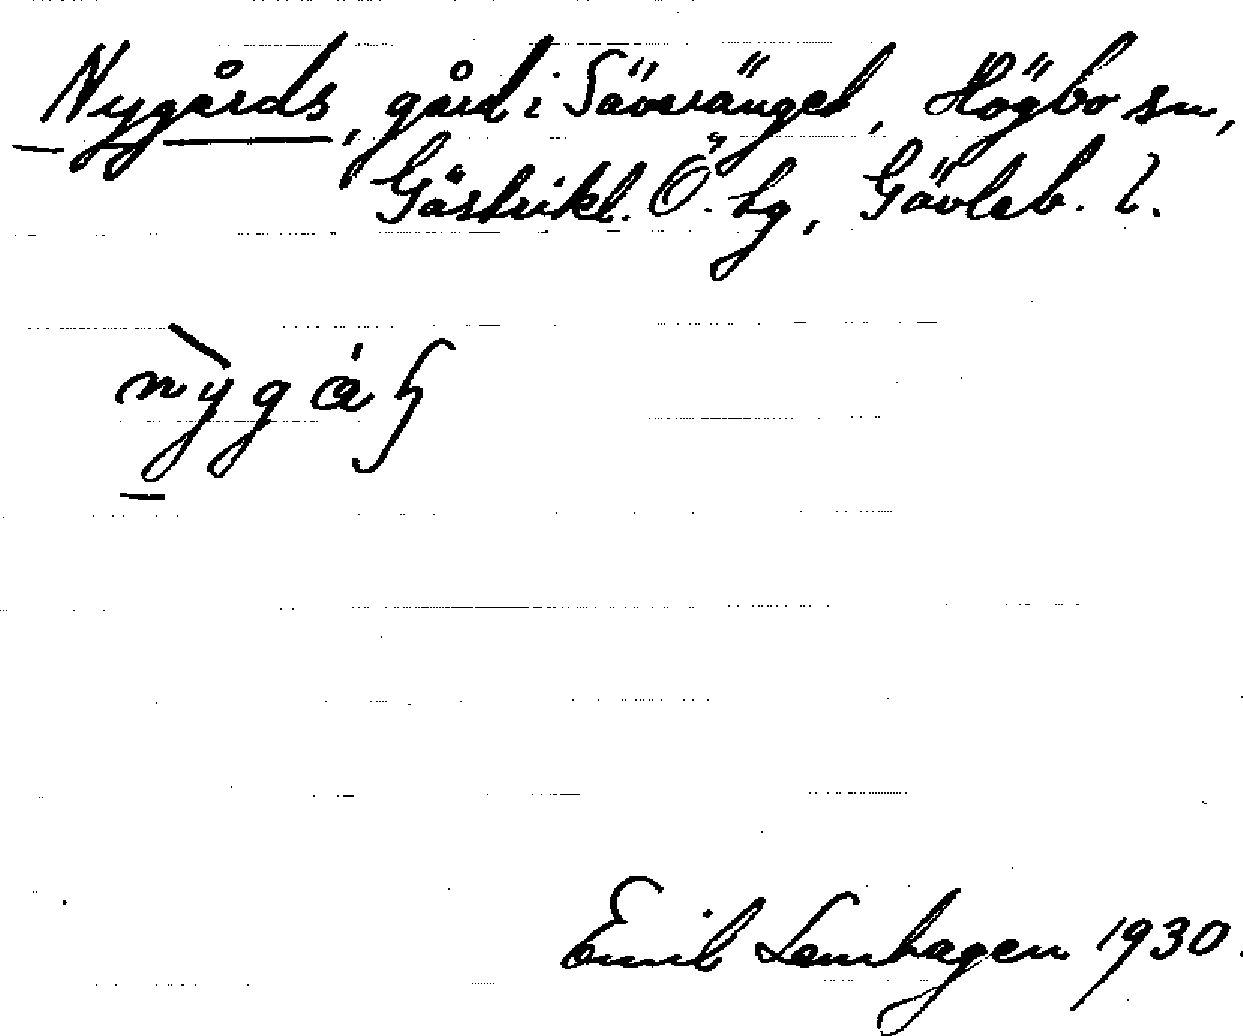 Nygårds, gård i Säveränget, Högbo sn,
Gästrikl. Ö. tg, Gävleb. l.
nỳgáʂ
Emil Lemhagen 1930.